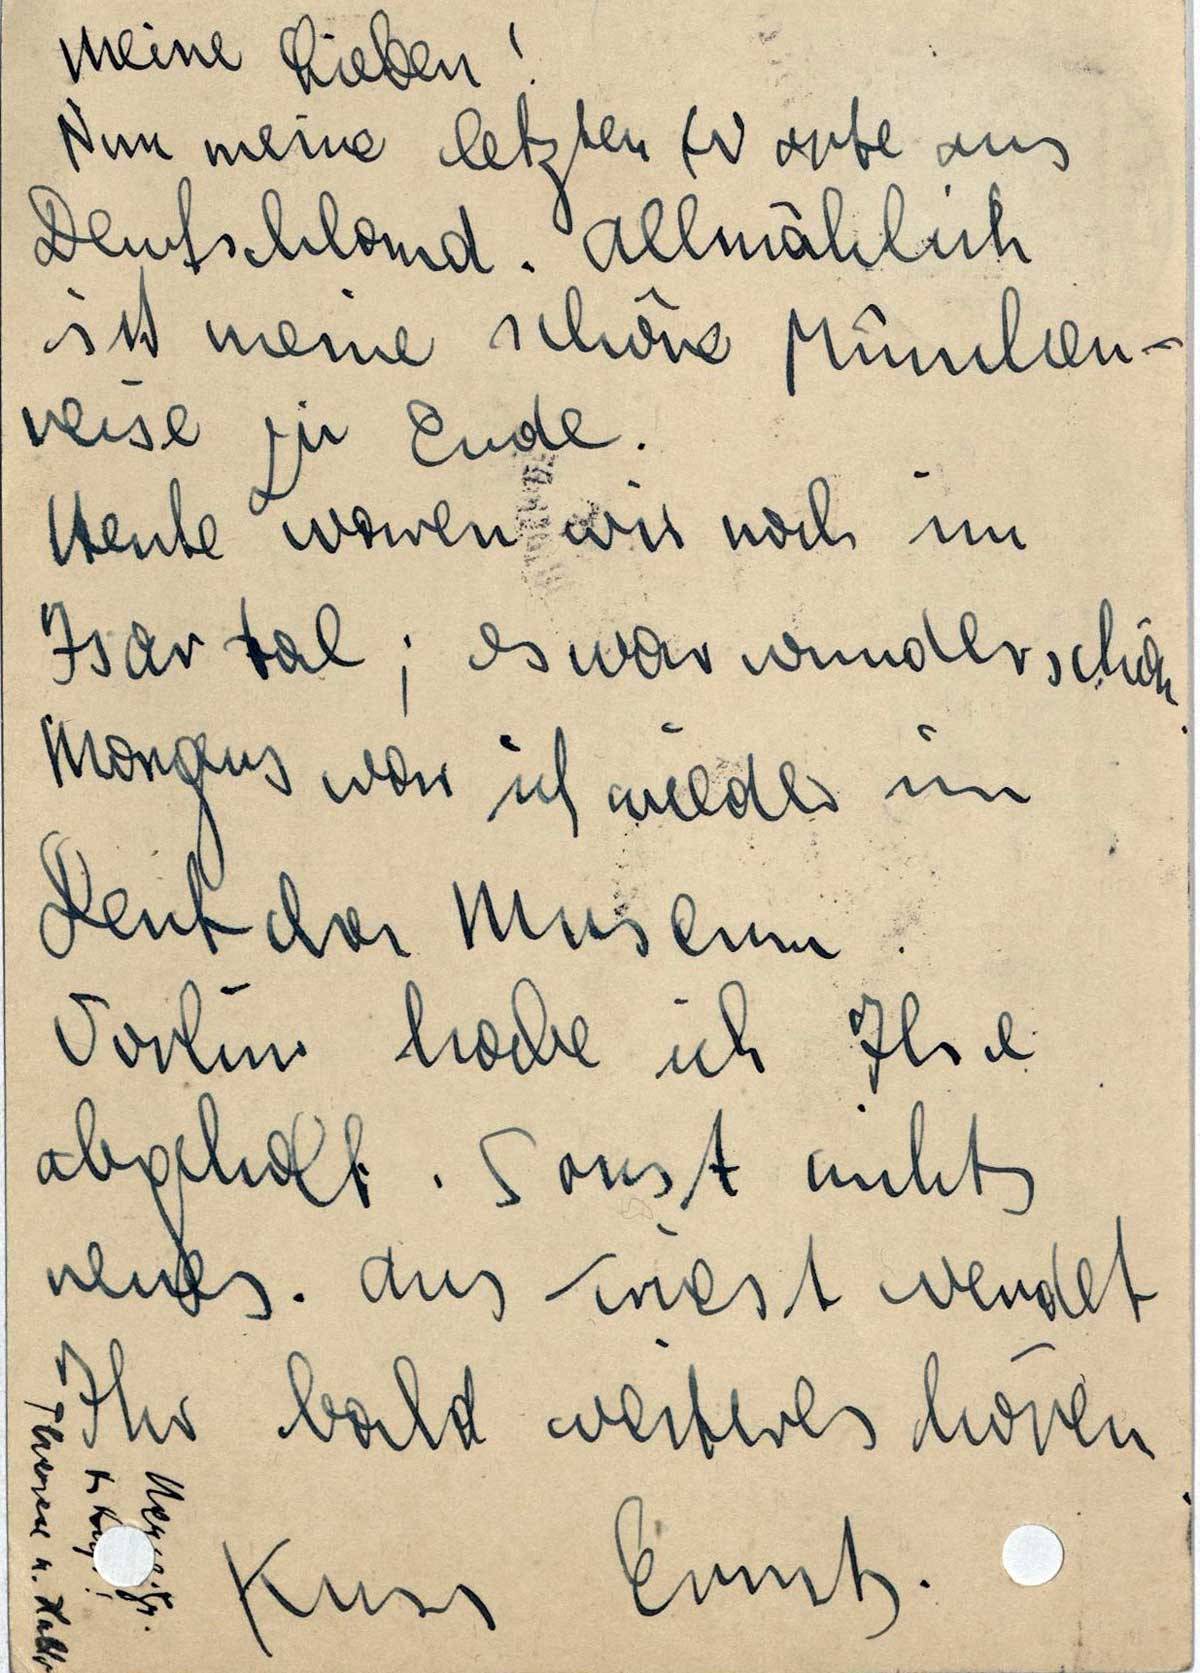 Meine Lieben!
Nun meine letzten Worte aus
Deutschland. Allmählich
ist meine schöne München-
reise zu Ende.
Heute waren wir noch im
Isartal; es war wunderschön
Morgens war ich wieder im
Deutschen Museum.
Vorhin habe ich Ilse
abgeholt. Sonst nichts
neues. Aus Triest werdet
Ihr bald weiteres hören
Kuss Ernst.
Therese u.